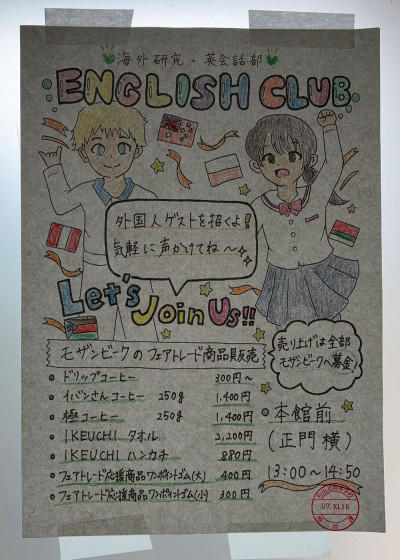 海外研究・英会話部
ENGLISH CLUB
外国人ゲストを招くよ!
気軽に声かけてね〜
Let's Join Us!!
モザンビークのフェアトレード商品販売
・ドリップコーヒー 300円〜
・イバンさんコーヒー 250g 1,400円
・極コーヒー 250g 1,400円
・IKEUCHI タオル 2,200円
・IKEUCHI ハンカチ 880円
・フェアトレード応援商品ワンポイントゴム(大) 400円
・フェアトレード応援商品ワンポイントゴム(小) 300円
売り上げは全部
モザンビークへ募金!
・本館前
(正門横)
13:00〜14:50
07.10.16